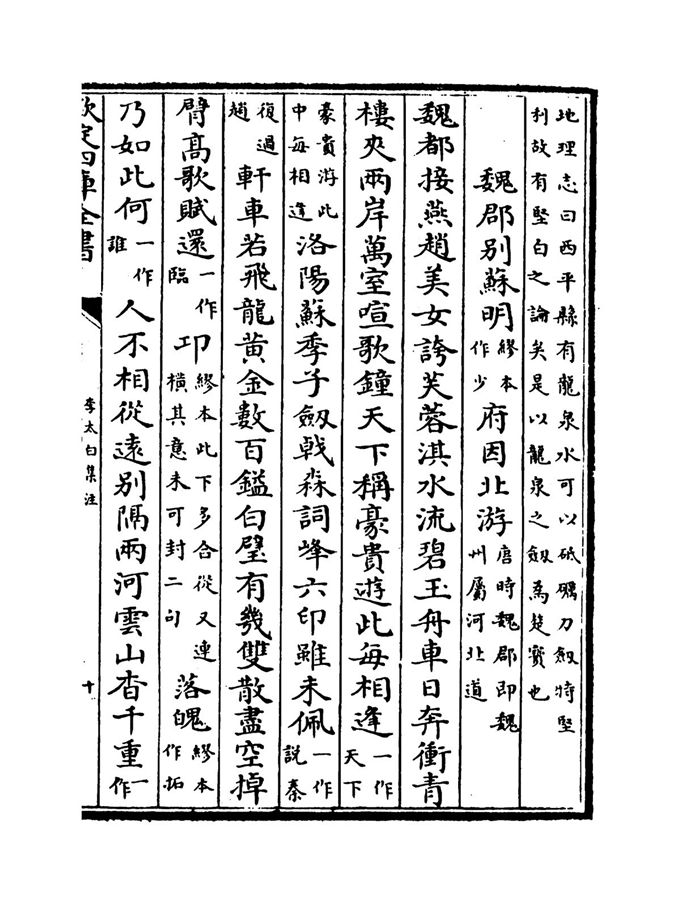 地理志曰西平縣有龍泉水可以砥礪刀劔特堅
利故有堅白之論矣是以龍泉之劔為楚寳也
魏郡別蘇明繆本作少府因北游唐時魏郡即魏州屬河北道
魏都接燕趙美女誇芙蓉淇水流碧玉舟車日奔衝青
樓夾兩岸萬室喧歌鐘天下稱豪貴遊此每相逢一作天下
豪貴游此中每相逢洛陽蘇季子劔戟森詞峰六印雖未佩一作說秦
復過趙軒車若飛龍黄金數百鎰白璧有幾雙散盡空掉
臂高歌賦還一作臨卭繆本此下多合從又連橫其意未可封二句落魄繆本作拓
乃如此何一作誰人不相從遠別隔兩河雲山杳千重一作
欽定四庫全書
李太白集注
十